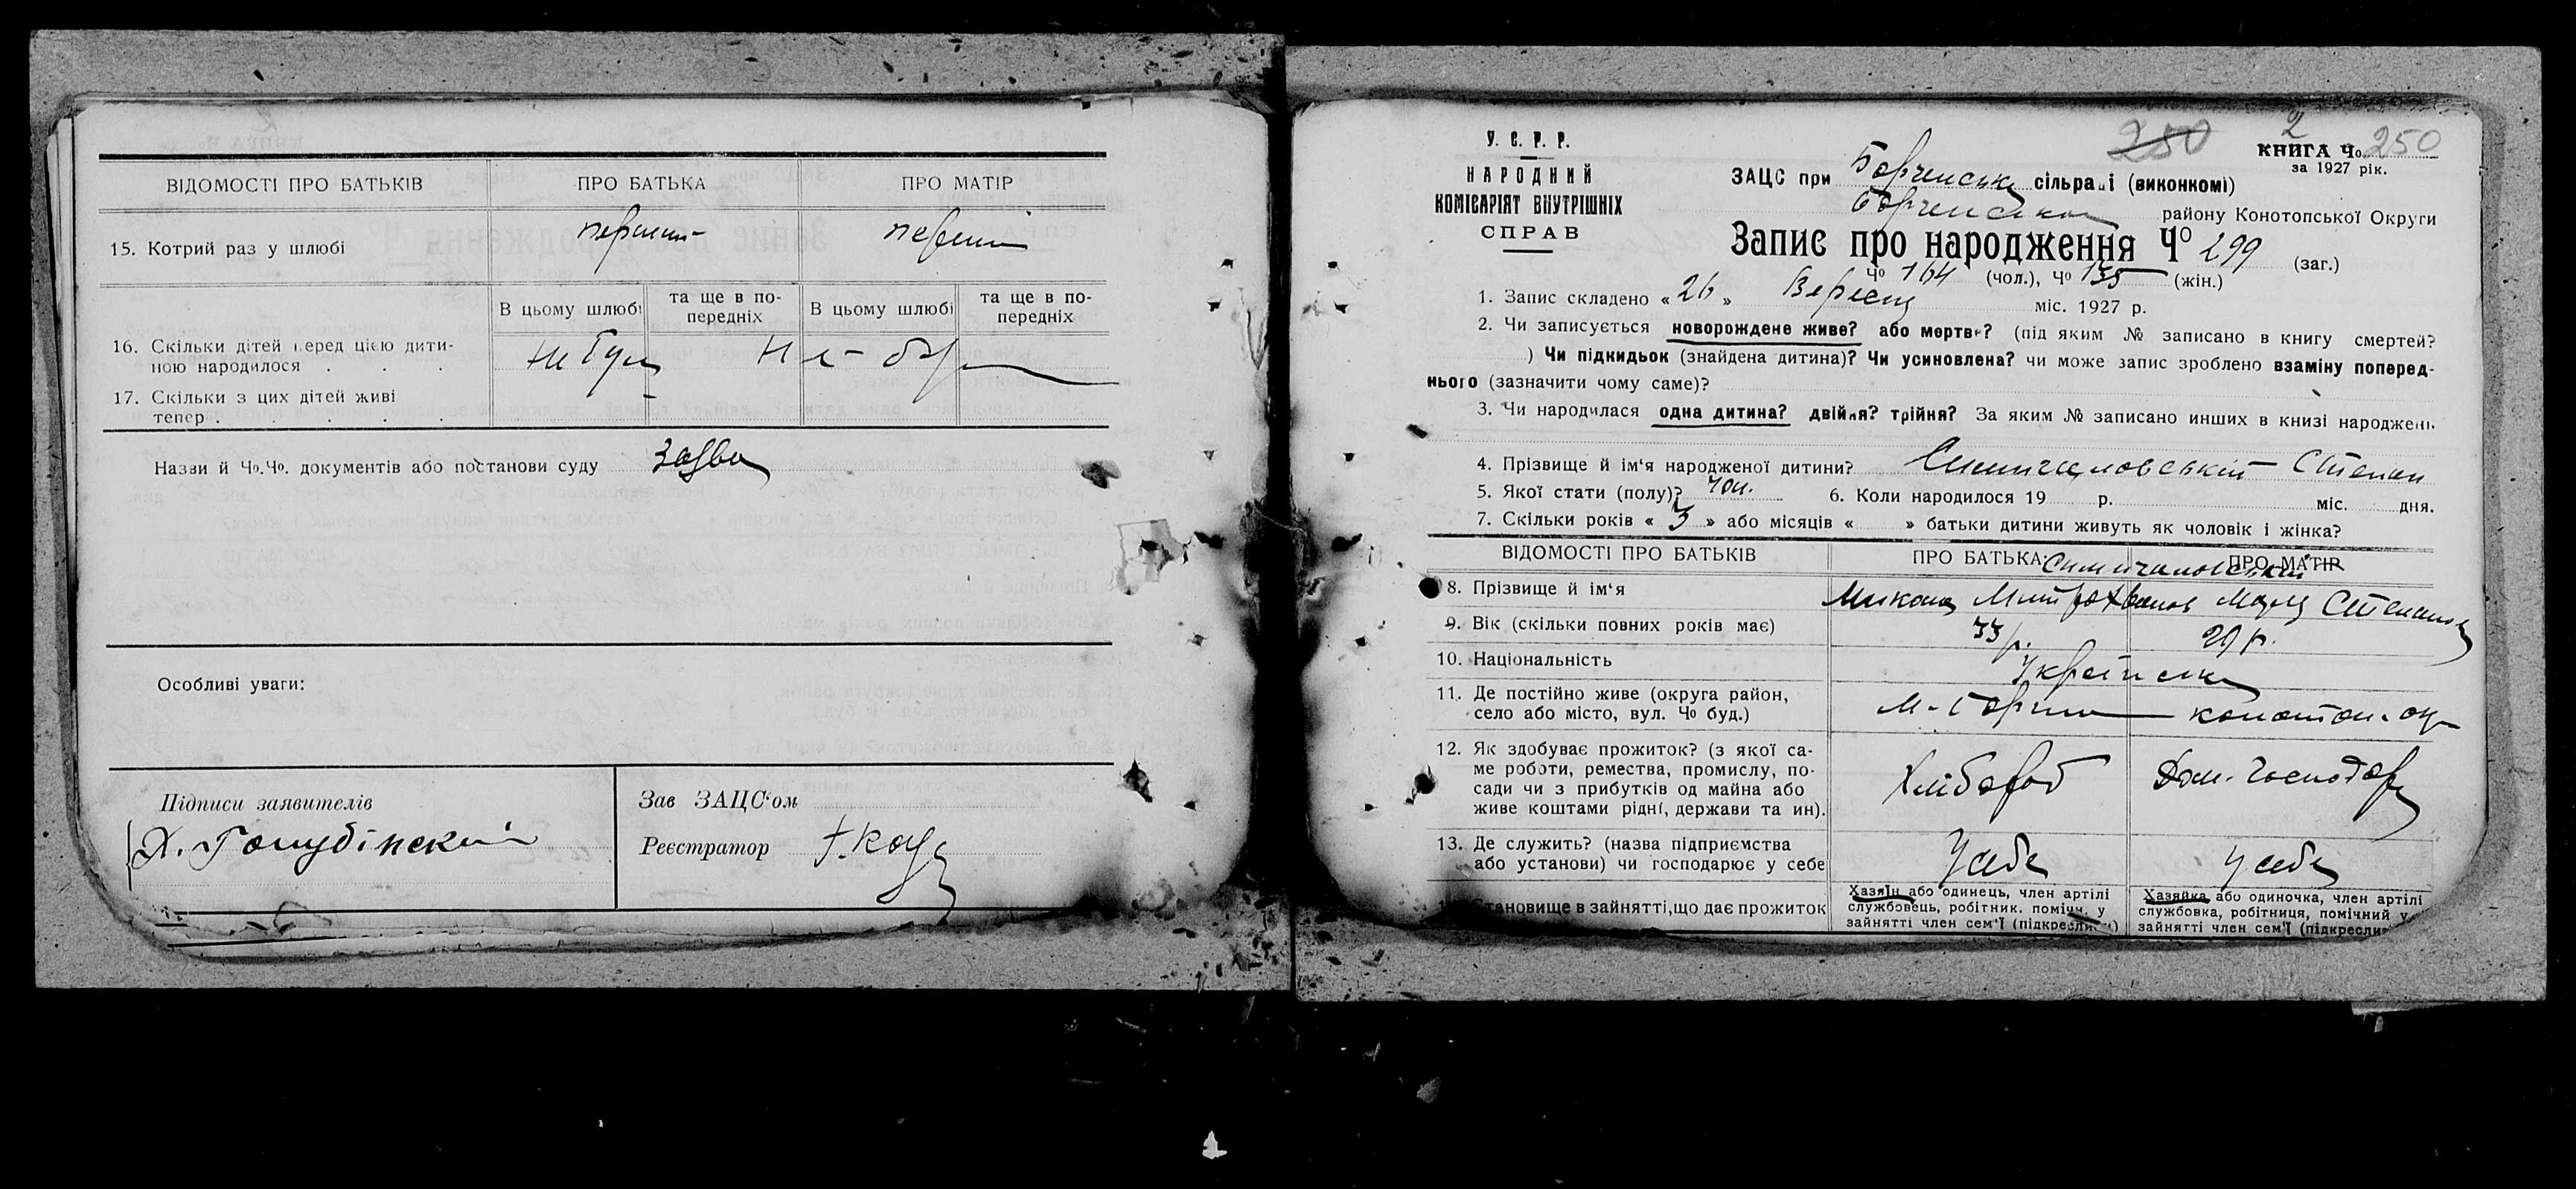 ВІДОМОСТІ ПРО БАТЬКІВ
ПРО БАТЬКА
ПРО МАТІР
15. Котрий раз у шлюбі
перший
перший
В цьому шлюбі
та ще в по-
передніх
В цьому шлюбі
та ще в по-
передніх
16. Скільки дітей перед цією дити-
ною народилося . . .
Не було
Не було
17. Скільки з цих дітей живі
тепер . . . . .
Назви й Чо.Чо. документів або постанови суду
Заява
Особливі уваги:
Підписи заявителів
Зав ЗАЦС'ом
Реєстратор
У. С. Р. Р.
НАРОДНИЙ
КОМІСАРІЯТ ВНУТРІШНІХ
СПРАВ
250
2
КНИГА Чо 250
за 1927 рік.
ЗАЦС при Борзенській сільраді (виконкомі)
Борзенського району Конотопської Округи
Запис про народження Чо 299 (заг.)
Чо 164 (чол.), Чо 135 (жін.)
1. Запис складено « 26 » Вересня міс. 1927 р.
2. Чи записується новорождене живе? або мертве? (під яким № записано в книгу смертей?
) Чи підкидьок (знайдена дитина)? Чи усиновлена? чи може запис зроблено взаміну поперед-
нього (зазначити чому саме)?
3. Чи народилася одна дитина? двійня? трійня? За яким № записано инших в книзі народжень
4. Прізвище й ім'я народженої дитини? Степан
5. Якої стати (полу)? чол. 6. Коли народилося 19 р. міс. дня.
7. Скільки років « 3 » або місяців « » батьки дитини живуть як чоловік і жінка?
ВІДОМОСТІ ПРО БАТЬКІВ
ПРО БАТЬКА
ПРО МАТІР
8. Прізвище й ім'я
Микола Митрофанов
Степанов
9. Вік (скільки повних років має)
33 р.
29 р.
10. Національність
Українська
11. Де постійно живе (округа район,
село або місто, вул. Чо буд.)
м. Борзна конотоп. окр
12. Як здобуває прожиток? (з якої са-
ме роботи, ремества, промислу, по-
сади чи з прибутків од майна або
живе коштами рідні, держави та ин).
Хлібороб
Дом. господар
13. Де служить? (назва підприємства
або установи) чи господарює у себе
У себе
У себе
Становище в зайнятті,що дає прожиток
Хазяїн або одинець, член артілі
службовець, робітник. поміч. у
зайнятті член сем'ї (підкреслити)
Хазяйка або одиночка, член артілі
службовка, робітниця, помічний у
зайнятті член сем'ї (підкресли